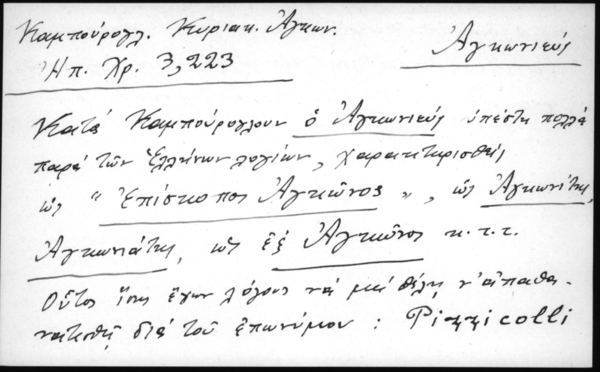 Καμπούρογλ. Κυριακ. Ἀγκων.
Ἀγκωνιεύς
Ἠπ. Χρ. 3,223
Κατὰ Καμπούρογλουν ὁ Ἀγκωνιεύς ὑπέστη πολλὰ
παρὰ τῶν Ἑλλήνων λογίων, χαρακτηρισθεὶς
ὡς "Ἐπίσκοπος Ἀγκῶνος", ὡς Ἀγκωνίτης,
Ἀγκωνιάτης, ὡς ἐξ Ἀγκῶνος κ.τ.τ.
Οὗτος ἴσως ἔχων λόγους νὰ μὴ θέλῃ ν' ἀπαθα-
νατισθῇ διὰ τοῦ ἐπωνύμου : Pizzicolli